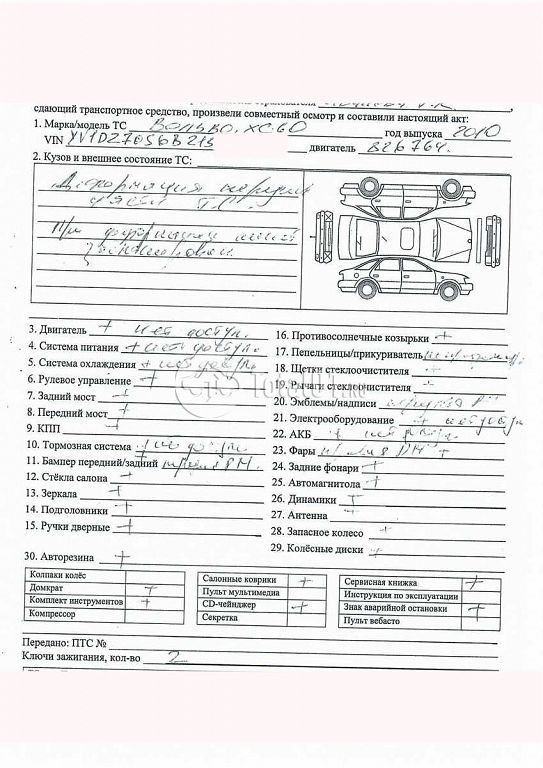 сдающий транспортное средство, произвели совместный осмотр и составили настоящий акт:
1. Марка/модель ТС Вольво, XC60 год выпуска 2010
VIN двигатель 826764.
2. Кузов и внешнее состояние ТС:
Деформация передней
части Т.С.
3. Двигатель + нет доступ.
4. Система питания + нет доступ.
5. Система охлаждения + нет доступ.
6. Рулевое управление +
7. Задний мост +
8. Передний мост +
9. КПП +
10. Тормозная система + нет доступ.
11. Бампер передний/задний
12. Стёкла салона +
13. Зеркала +
14. Подголовники +
15. Ручки дверные +
16. Противосолнечные козырьки +
17. Пепельницы/прикуриватель
18. Щетки стеклоочистителя +
19. Рычаги стеклоочистителя +
20. Эмблемы/надписи
21. Электрооборудование + нет доступ
22. АКБ + нет доступ.
23. Фары
24. Задние фонари +
25. Автомагнитола +
26. Динамики +
27. Антенна +
28. Запасное колесо +
29. Колёсные диски +
30. Авторезина +
Колпаки колёс
Домкрат +
Комплект инструментов +
Компрессор
Салонные коврики +
Пульт мультимедиа
CD-чейнджер +
Секретка
Сервисная книжка +
Инструкция по эксплуатации
Знак аварийной остановки +
Пульт вебасто
Передано: ПТС №
Ключи зажигания, кол-во 2